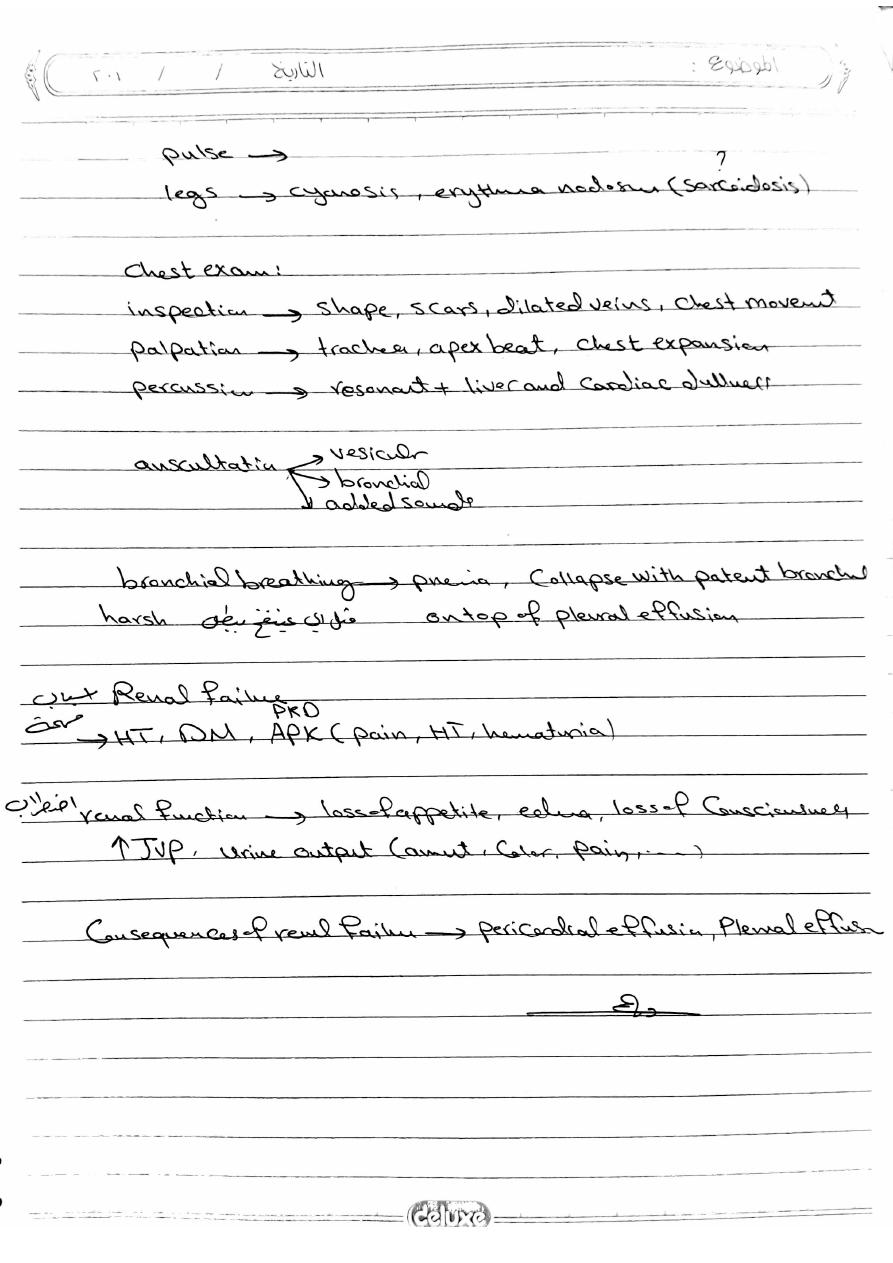 الموضوع :
التاريخ / / ٢٠١
pulse →
?
legs → cyanosis, erythma nodosum (sarcoidosis)
Chest exam:
inspection → shape, scars, dilated veins, chest movent
palpation → trachea, apex beat, chest expansion
percussion → resonant + liver and cardiac dullness
auscultation → vesicular
→ bronchial
→ added sounds
bronchial breathing → pnemia, Collapse with patent bronchus
harsh on top of pleural effusion
اسباب Renal failure
PKD
→ HT, DM, APK (pain, HT, hematuria)
renal function → loss of appetite, edema, loss of Consciousness
↑ JVP, Urine output (amount, Color, pain, ....)
Consequences of renal failure → pericardial effusion, Pleural effusion
deluxe